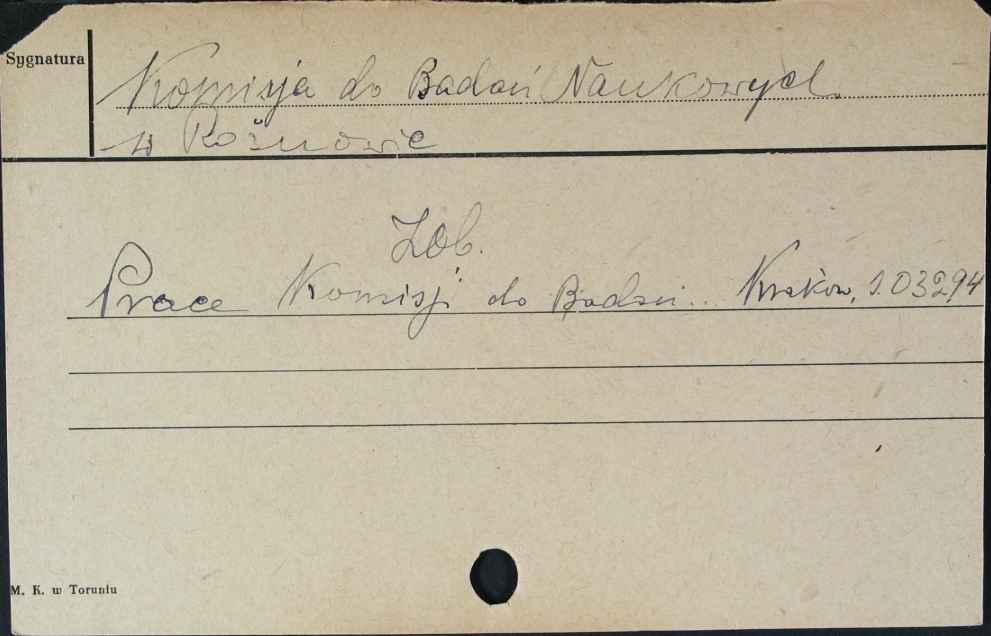 Sygnatura
Komisja do Badań Naukowych
w Rożnowie
Zob.
Prace Komisji do Badań... Kraków, S.03294
M. K. w Toruniu